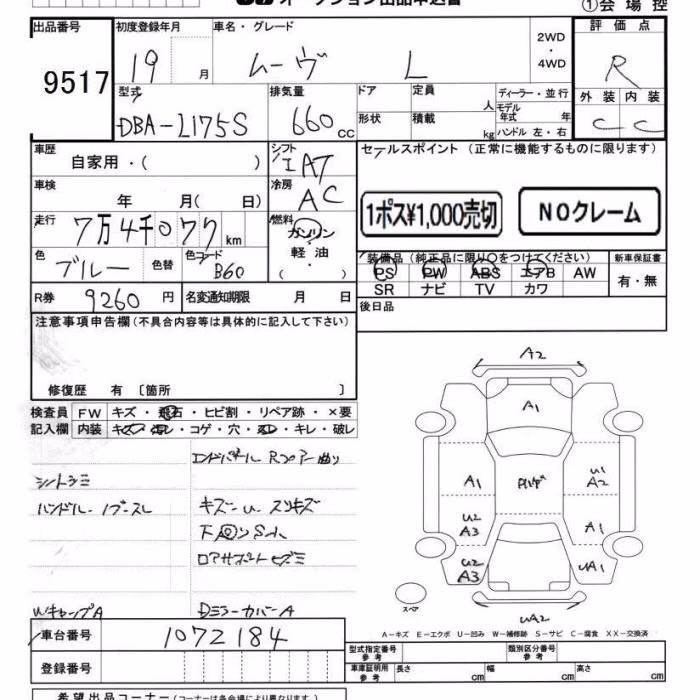 オークション出品申込書
①会場控
出品番号 初度登録年月 車名・グレード 2WD・4WD 評価点
9517 19 月 ムーヴ L R
型式 排気量 ドア 定員 人 ディーラー・並行 外装 内装
DBA-L175S 660 cc 形状 積載 kg モデル年式 年 ハンドル 左・右 C C
車歴 自家用・( ) シフト IAT セールスポイント (正常に機能するものに限ります)
車検 年 月( 日) 冷房 AC
1ポス¥1,000売切 NOクレーム
走行 7万4千077 km 燃料 ガソリン・軽油・( )
色 ブルー 色替 色コード B60
装備品 (純正品に限り○をつけてください) 新車保証書
PS PW ABS エアB AW 有・無
SR ナビ TV カワ
R券 9260 円 名変通知期限 月 日
後日品
注意事項申告欄 (不具合内容等は具体的に記入して下さい)
修復歴 有 〔箇所 〕
検査員 FW キズ・飛石・ヒビ割・リペア跡・×要
記入欄 内装 キズ・汚レ・コゲ・穴・スレ・キレ・破レ
エンドパネル Rフロアー曲り
シートシミ
ハンドル・ノブスレ キズ・u・スリキズ
下回りSM
Wキャップ A DミラーカバーA
A2
A1
A1 u1 A2
u2 A3 A1
u2 A3 uA1
スペア
uA2
A-キズ E-エクボ U-凹み W-補修跡 S-サビ C-腐食 XX-交換済
車台番号 1072184
型式指定番号 参考 類別区分番号 参考
登録番号 車庫証明用 参考 長さ cm 幅 cm 高さ cm
希望出品コーナー (コーナーは各会場により異なります。)